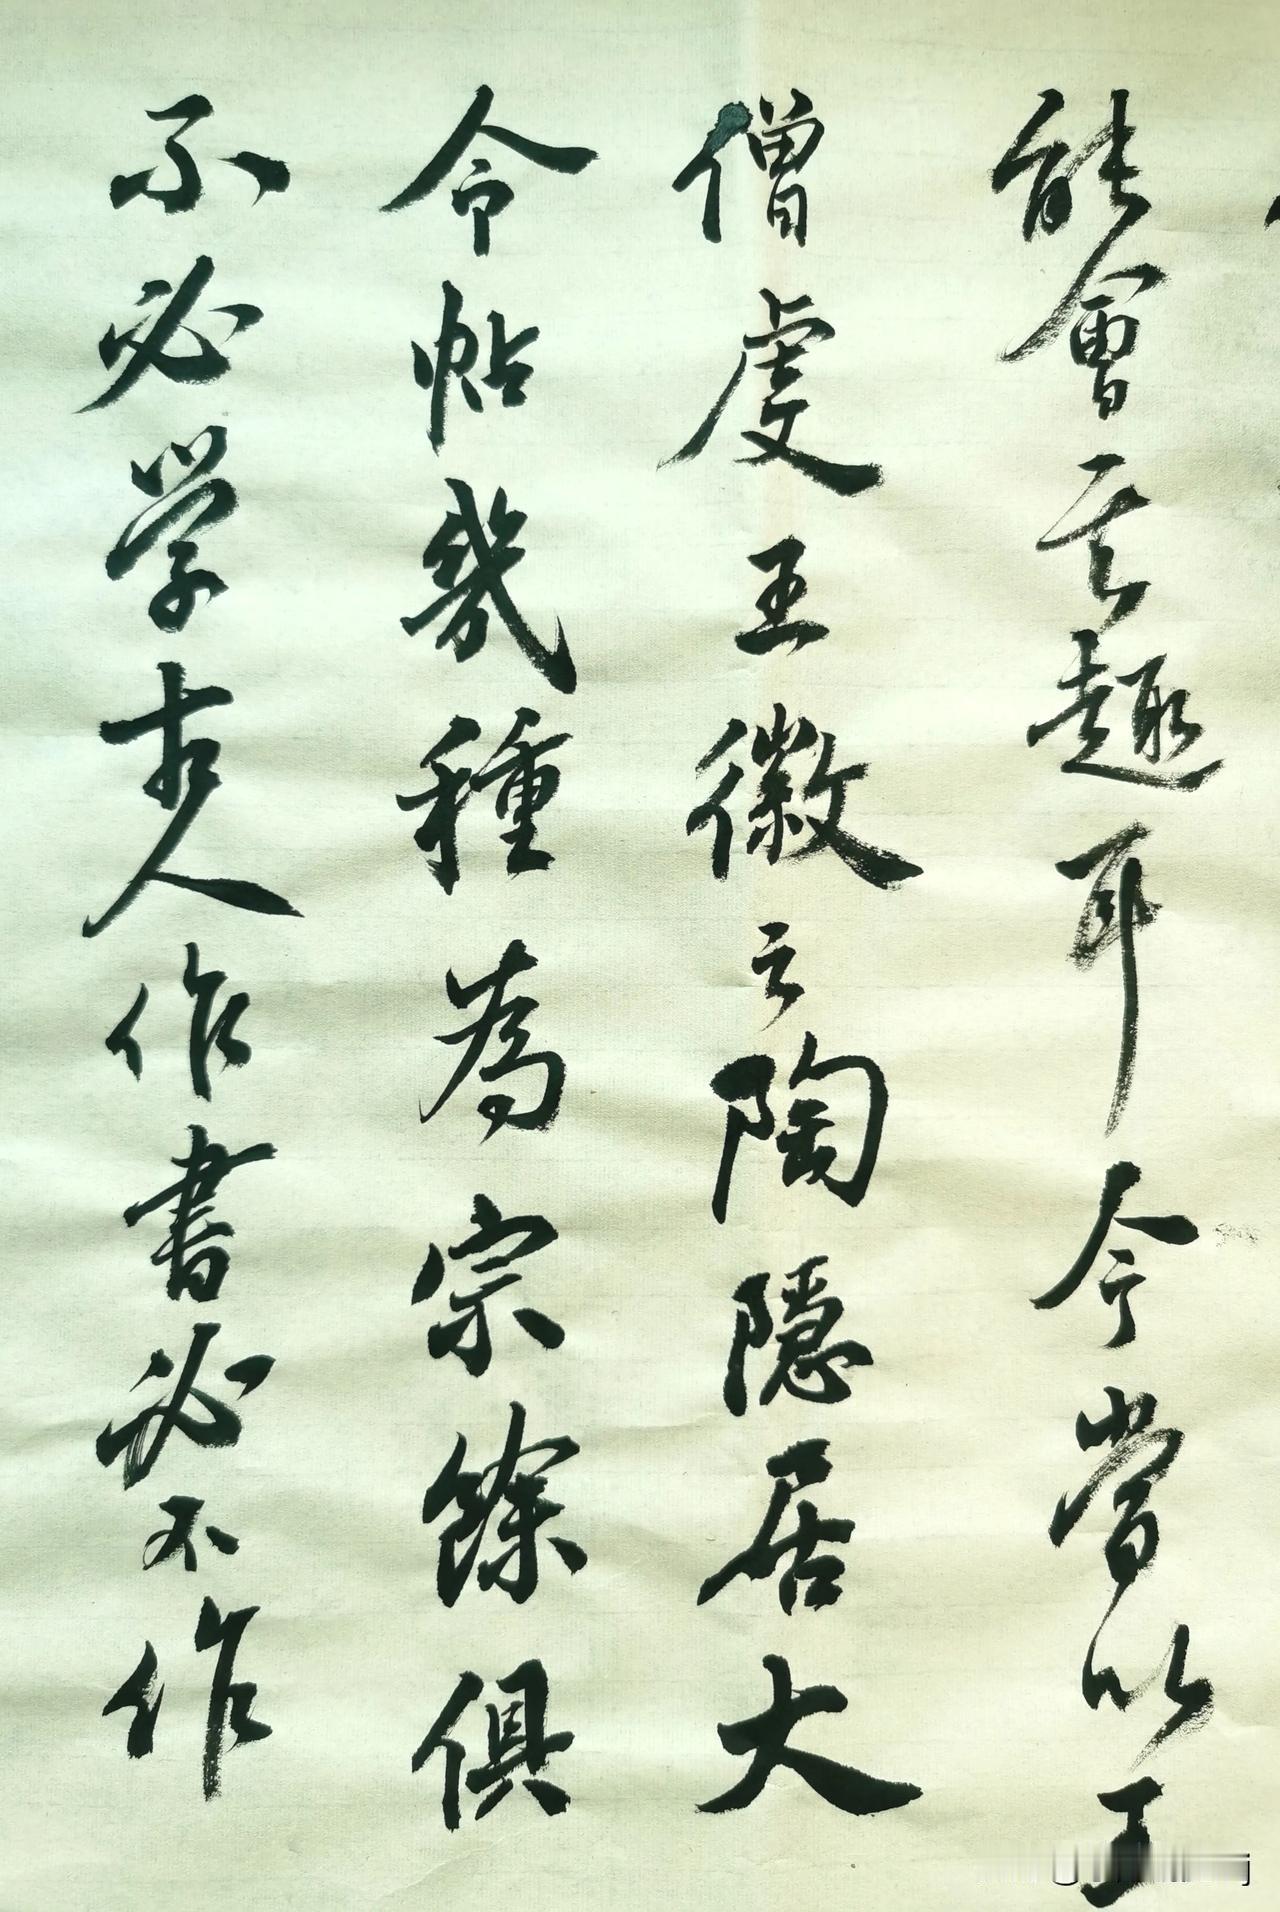 能會其趣耳今當以王
僧虔王徽之陶隱居大
令帖幾種為宗餘俱
不必學古人作書必不作